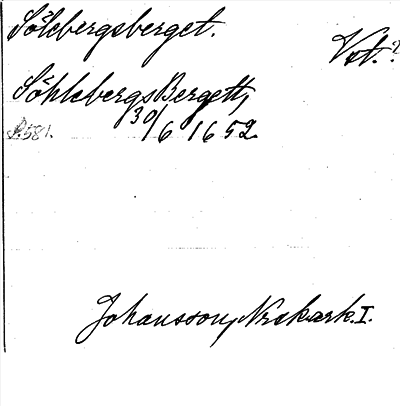 Sölebergsberget.
Vst.?
SöhlebergsBergett,
30/6 1652.
P. 581.
Johansson, Nrakark. I.